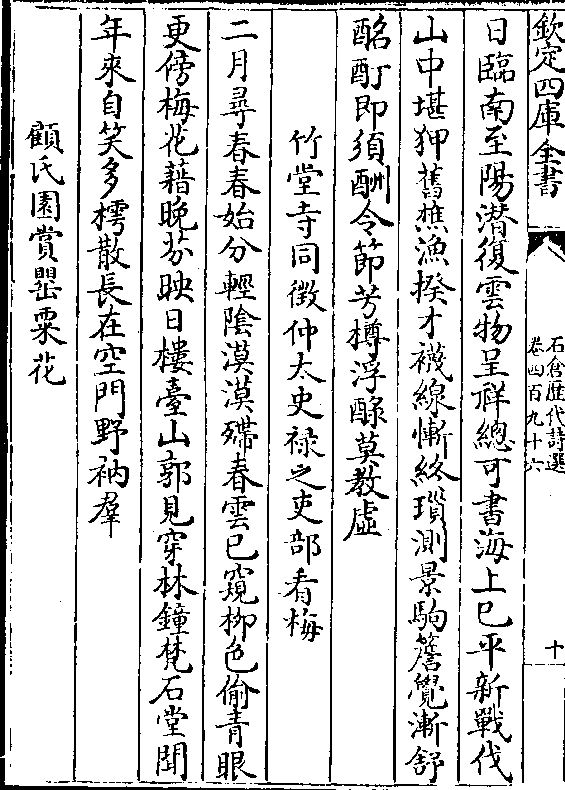 欽定四庫全書
石倉歷代詩選
卷四百九十六
十
日臨南至陽潛復雲物呈祥總可書海上已平新戰伐
山中堪狎舊樵漁揆才襪線慚終瑣測景駒簷覺漸舒
酩酊即須酬令節芳樽浮醁莫教虛
竹堂寺同徵仲太史祿之吏部看梅
二月尋春春始分輕陰漠漠殢春雲已窺柳色偷青眼
更傍梅花藉晚芬映日樓臺山郭見穿林鐘梵石堂聞
年來自笑多樗散長在空門野衲羣
顧氏園賞罌粟花